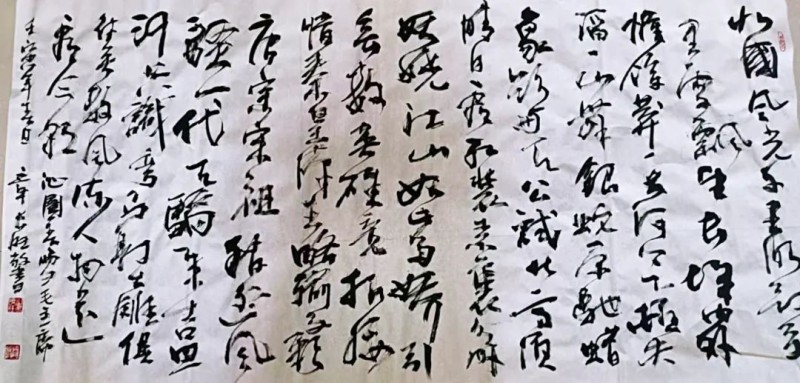 北國風光千里冰封萬
里雪飄望長城内外
惟餘莽莽大河上下頓失
滔滔山舞銀蛇原馳蠟
象欲與天公試比高須
晴日看紅裝素裹分外
妖嬈江山如此多嬌引
無數英雄競折腰
惜秦皇漢武略輸文采
唐宗宋祖稍遜風
騷一代天驕成吉思
汗只識彎弓射大雕俱
往矣數風流人物還
看今朝 沁園春 毛主席
壬寅年春月 敬書